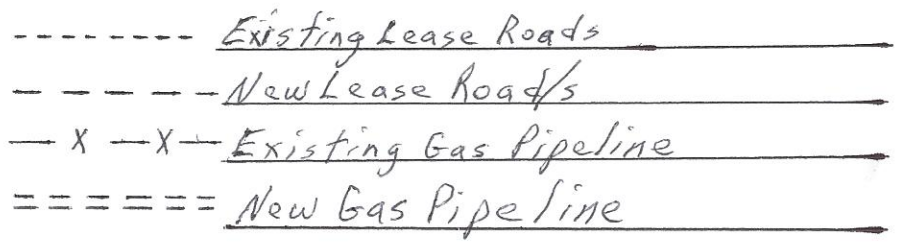 Existing Lease Roads
New Lease Road/s
X X Existing Gas Pipeline
New Gas Pipeline